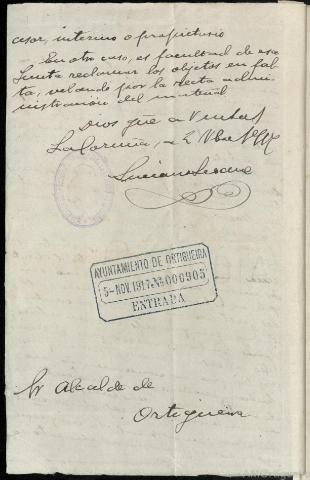 cesor, interino o propietario
En otro caso, es facultad de esa
Junta reclamar los objetos en fal-
ta, velando por la recta admi-
nistración del material
Dios gũe a V muchos
La Coruña, a 2 Nbre 1917
AYUNTAMIENTO DE ORTIGUEIRA
5-NOV.1917.Nº000905
ENTRADA
Sr Alcalde de
Ortigueira